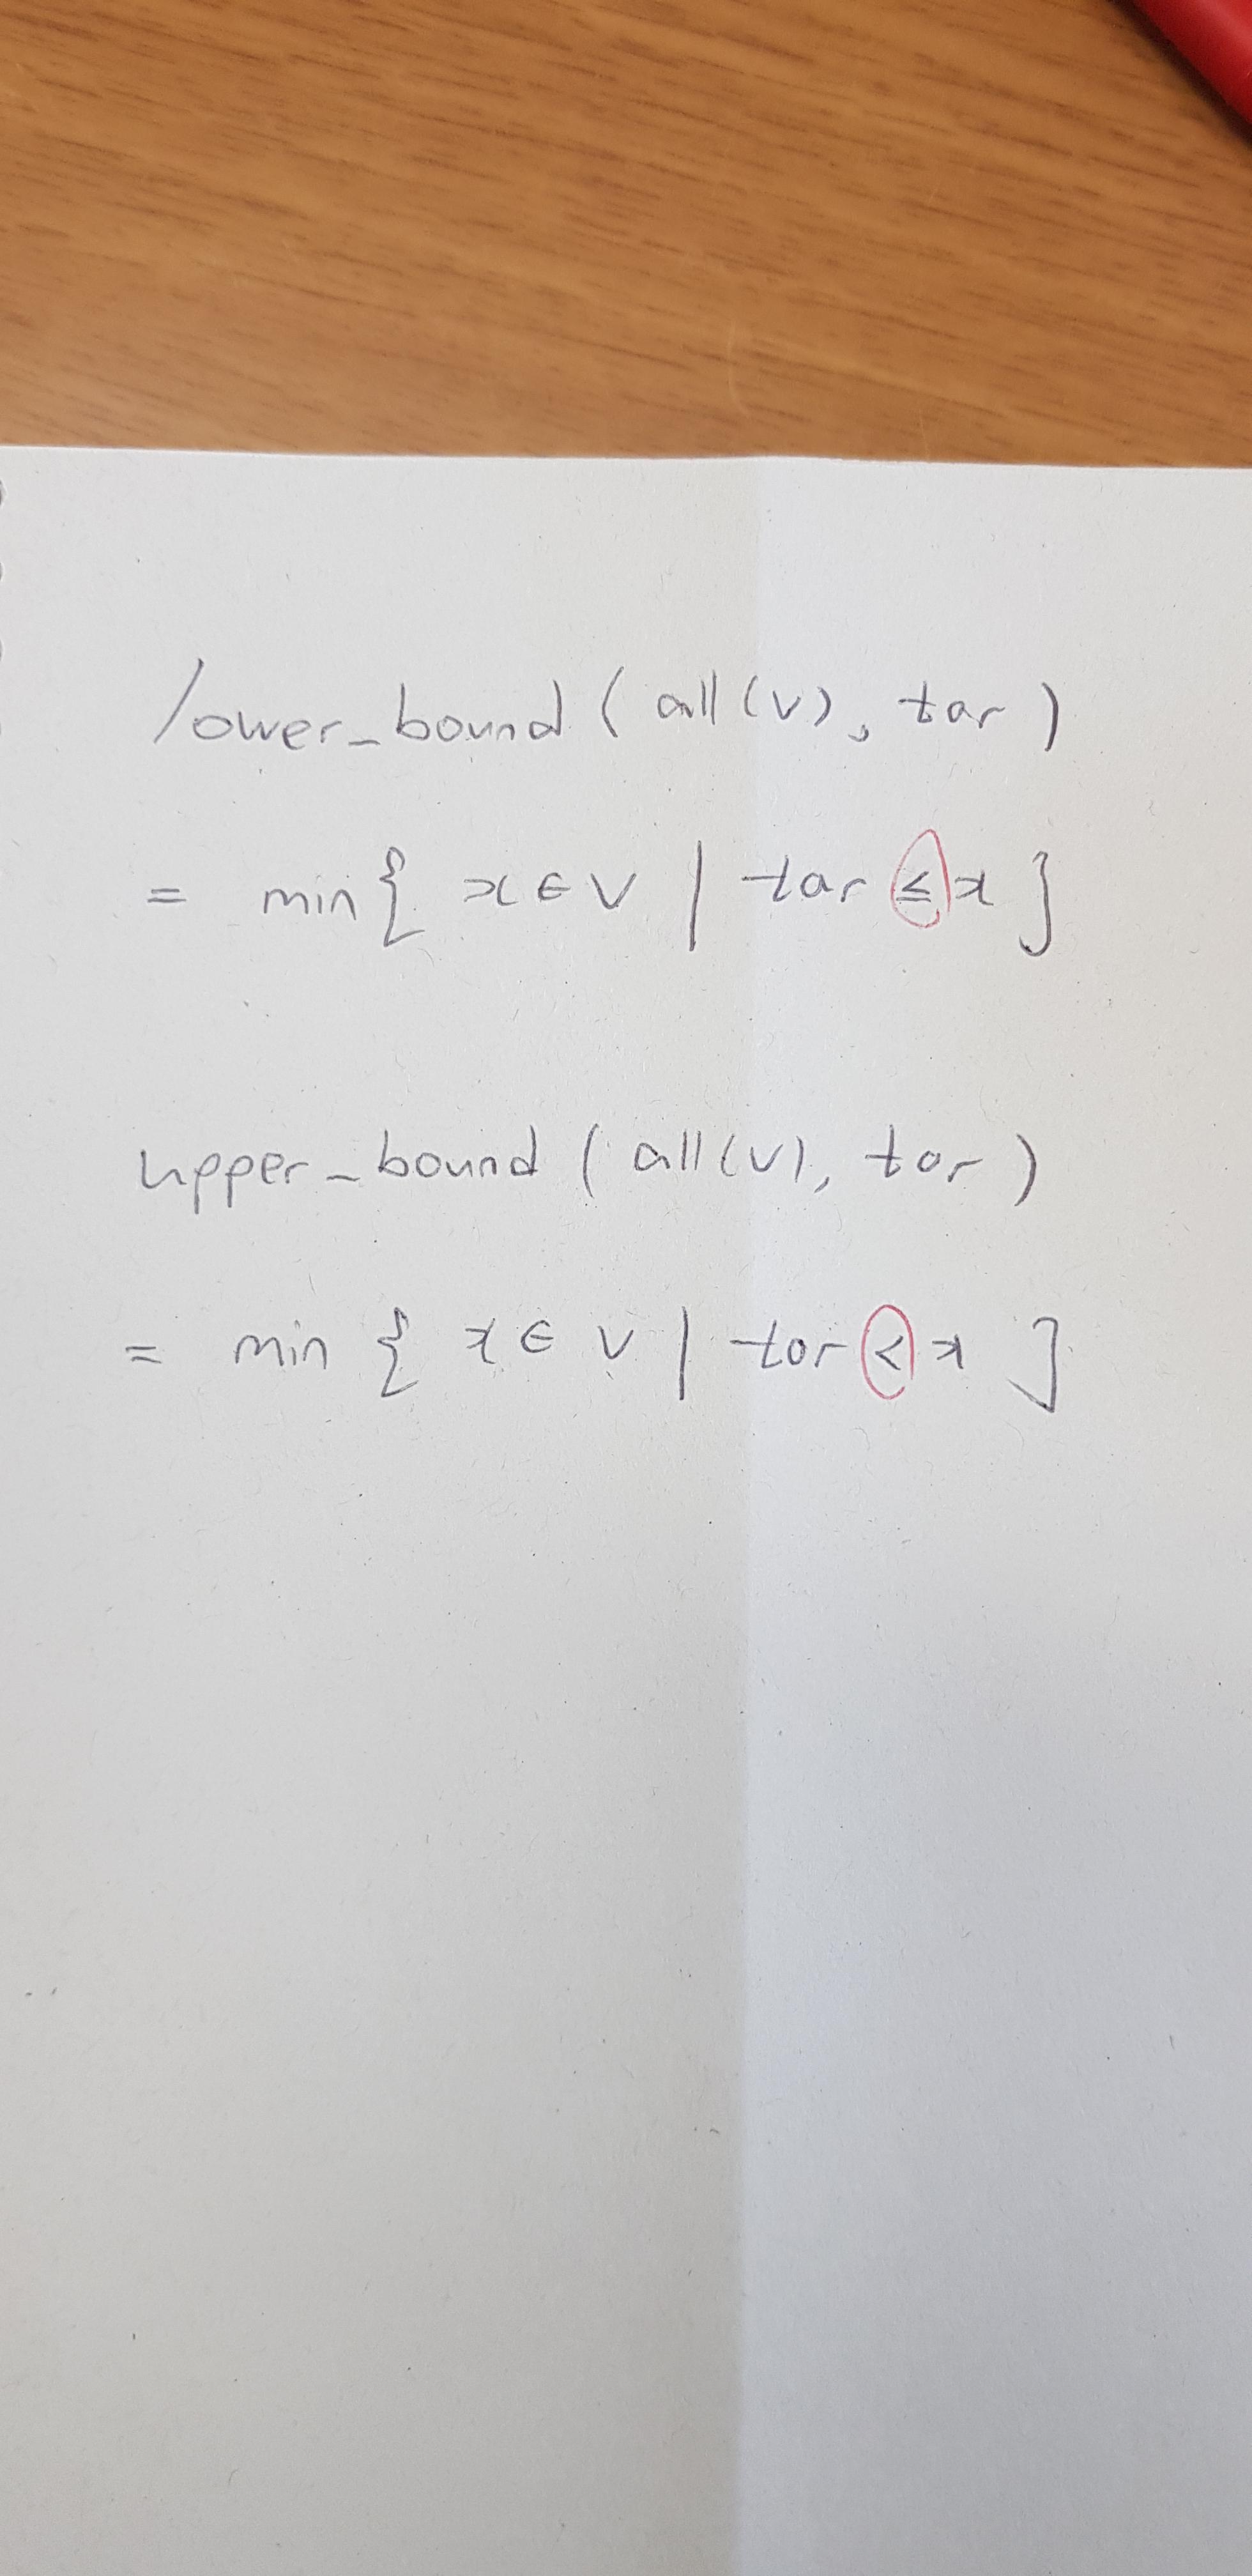 lower_bound ( all(v), tar )
= min{ x ∈ v | tar ≤ x }
upper_bound ( all(v), tar )
= min { x ∈ v | tar < x }